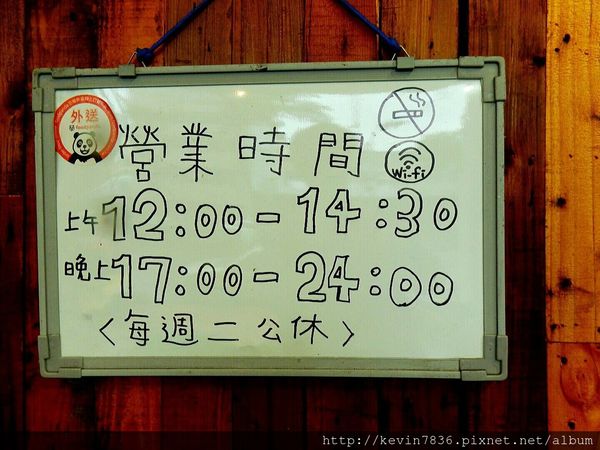 外送
foodpanda
營業時間
Wi-Fi
上午 12:00 - 14:30
晚上 17:00 - 24:00
<每週二公休>
http://kevin7836.pixnet.net/album